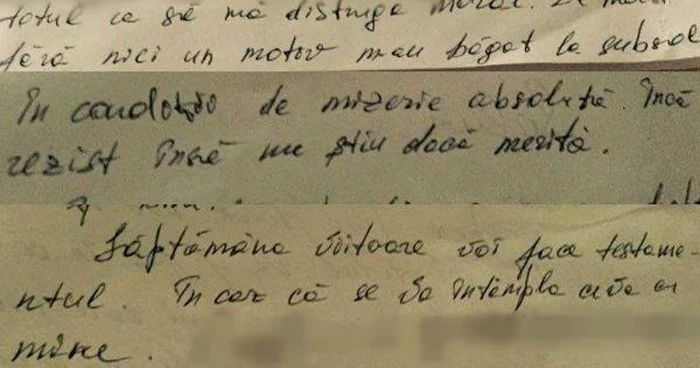 totul ca să mă distrugă moral. De
fără nici un motiv m-au băgat la subsol
În condiții de mizerie absolută. Încă
rezist însă nu știu dacă merită.
Săptămâna viitoare voi face testame-
ntul. În caz că se va întâmpla ceva cu
mine.